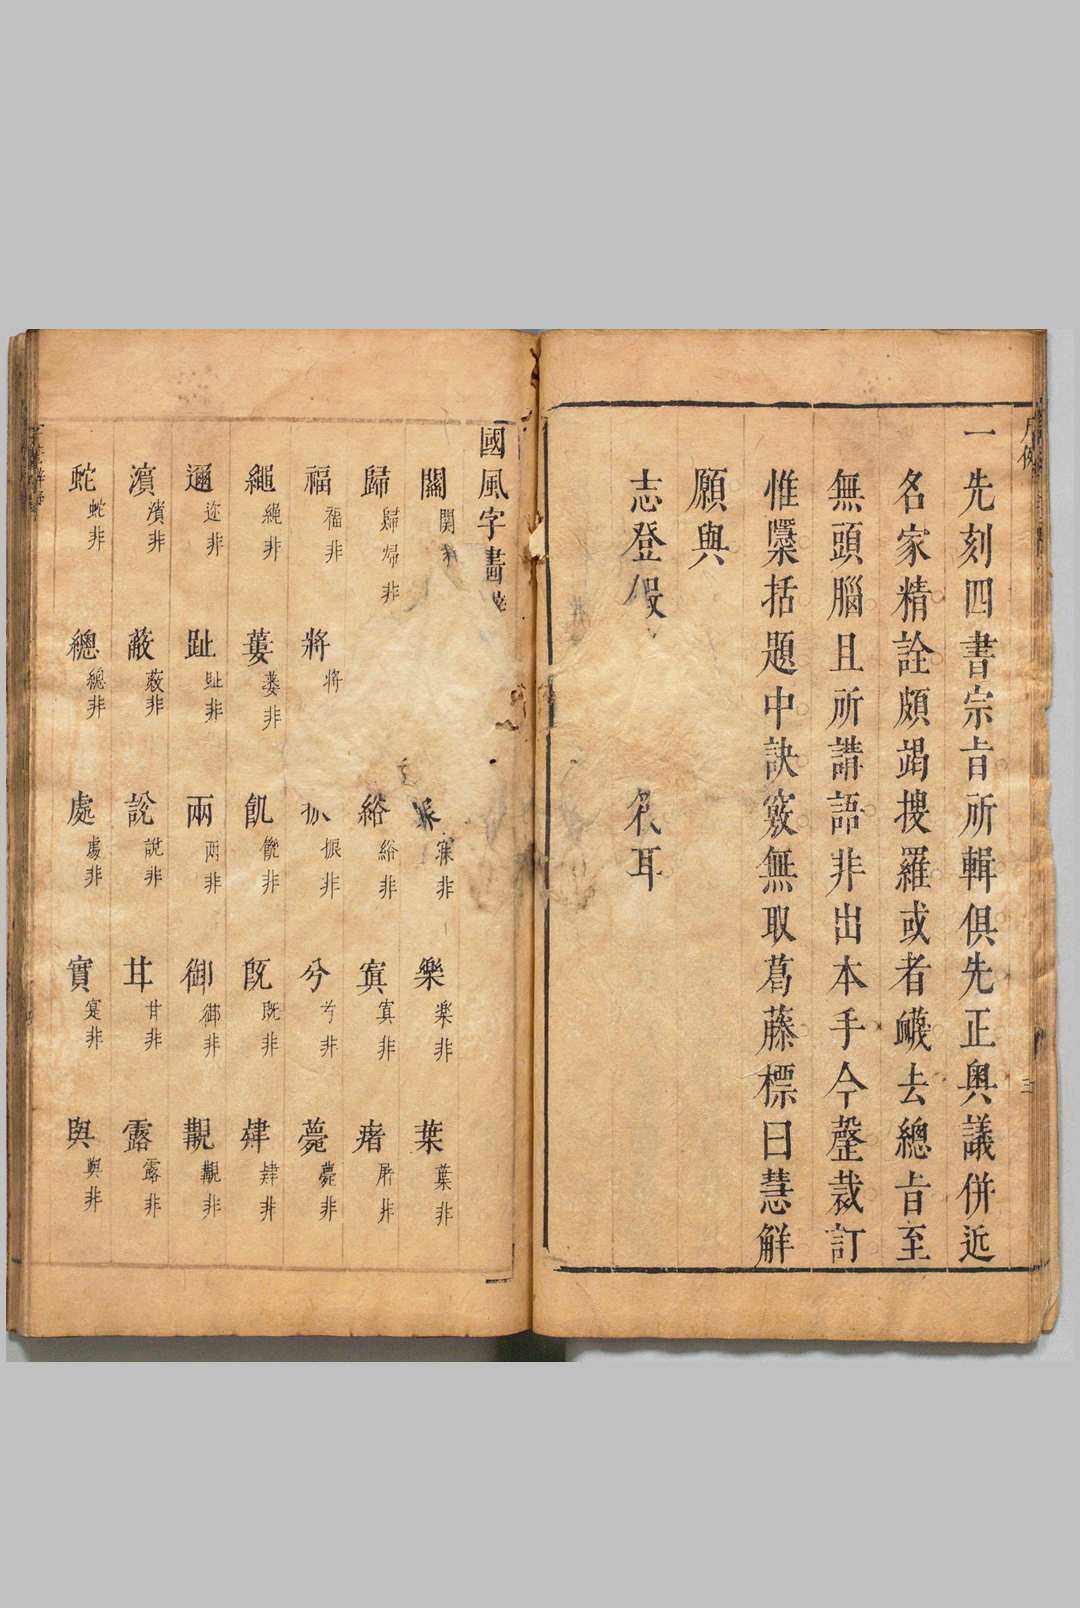 一先刻四書宗旨所輯俱先正奧議併近
名家精詮頗竭搜羅或者衊去總旨至
無頭腦且所講語非出本手今蹔裁訂
惟檃括題中訣竅無取葛藤標曰慧解
願與
志登 耳
國風字畫
關 関 寐非 樂 楽非 葉 葉非
歸 歸帰非 綌 綌非 寘 寘非 瘏 屠非
福 福非 將 将 振非 兮 兮非 薨 薨非
繩 縄非 蔞 蒌非 飢 饑非 旣 既非 肄 肆非
邇 迩非 趾 址非 兩 両非 御 御非 覯 覯非
濱 濱非 蔽 蔽非 訟 説非 甘 甘非 露 露非
蛇 虵非 總 緫非 處 處非 實 寔非 與 與非
三